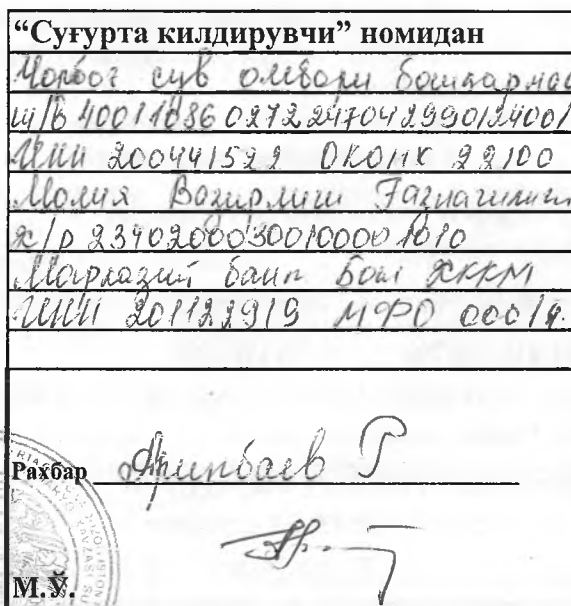 “Суғурта килдирувчи” номидан
Чорбоғ сув омбори бошқармас
ш/в 40011086 0272 24704 299012400/
ИНН 200441522 ОКОНХ 22100
Молия Вазирлиги Ғазначилиги
х/р 23402000300100001010
Марказий банк Бош ХККМ
ИНН 201122919 МФО 00014.
Рахбар Арипбаев Р
М.Ў.